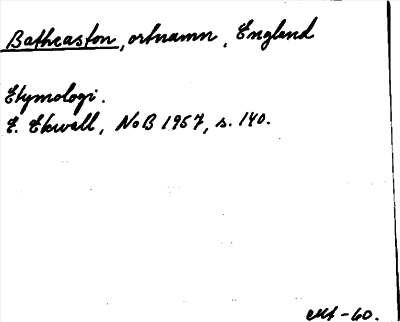 Batheaston, ortnamn, England
Etymologi.
E. Ekwall, NoB 1957, s. 140.
-60.